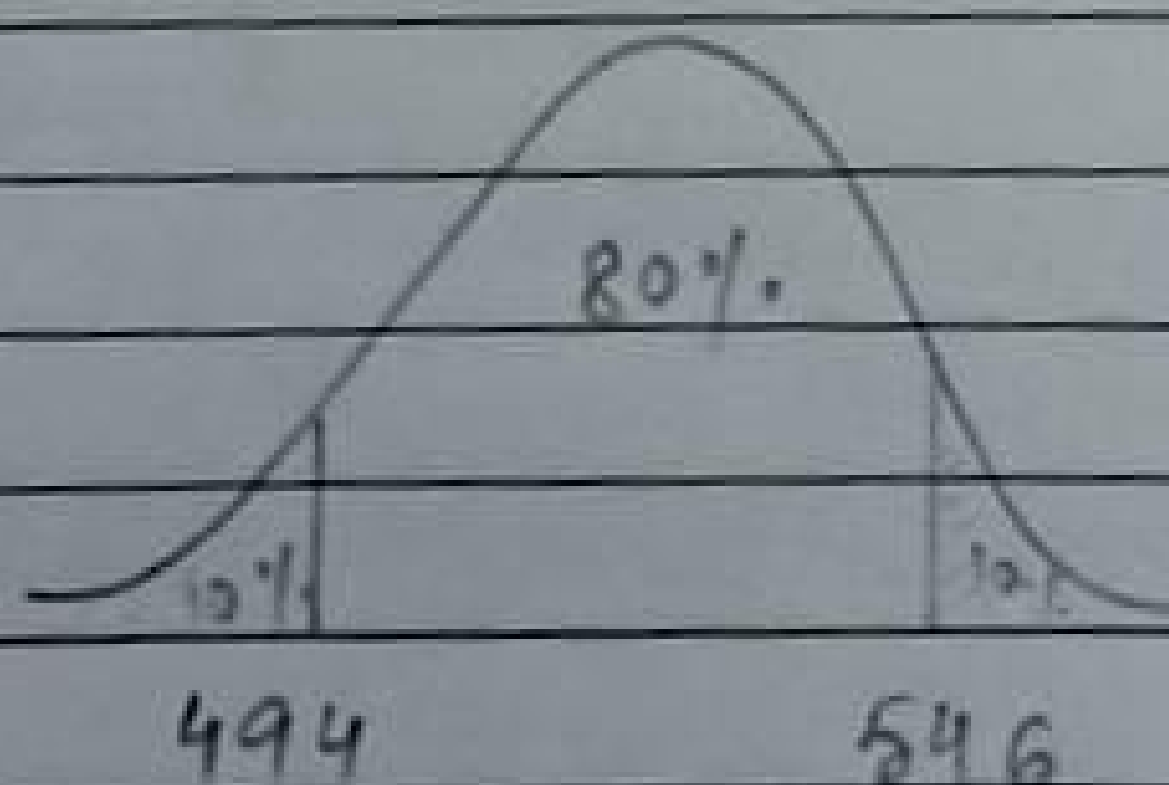 80%
10% 10%
494 546